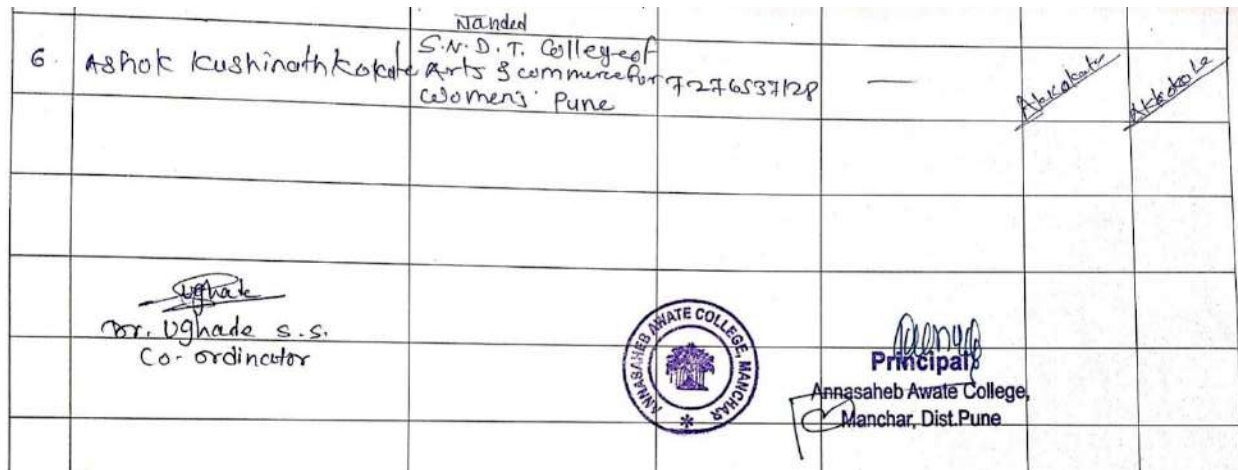 Nanded
6. Ashok Kashinath Kokate S.N.D.T. College of
Arts & commerce for 7276537128 —
Women's Pune
AKKokate AKKokate
Ughade
Dr. Ughade S.S.
Co-ordinator
ANNASAHEB AWATE COLLEGE, MANCHAR
Principal
Annasaheb Awate College,
Manchar, Dist.Pune